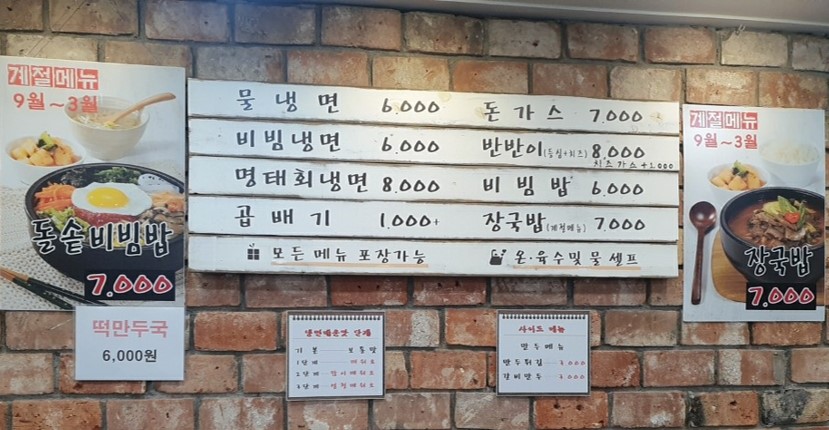 계절메뉴
9월~3월
돌솥비빔밥
7.000
떡만두국
6,000원
물냉면 6.000
비빔냉면 6.000
명태회냉면 8.000
곱배기 1.000+
모든메뉴 포장가능
돈가스 7.000
반반이(등심+치즈) 8.000
치즈가스 +1.000
비빔밥 6.000
장국밥(계절메뉴) 7.000
온·육수및물셀프
냉면매운맛 단계
기본 보통맛
1단계 매워요
2단계
3단계
사이드 메뉴
만두메뉴
만두튀김
갈비만두
계절메뉴
9월~3월
장국밥
7.000